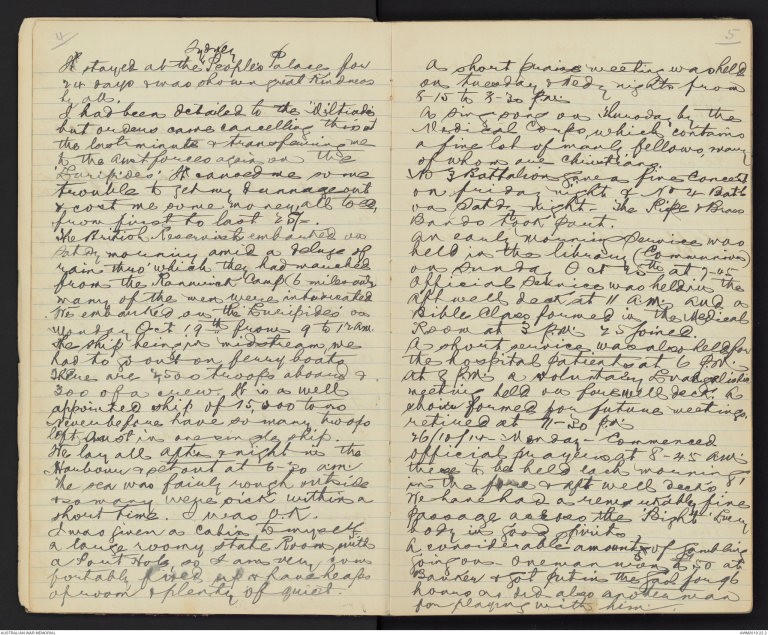 4
Sydney
I stayed at the People's Palace for
24 days & was shown great kindness
by all.
I had been detailed to the 'Miltiades
but orders came cancelling this at
the last minute & transferring me
to the Aust forces again on the
'Euripides'. It caused me some
trouble to get my dunnage out
& cost me some money, all to
from first to last £5/-.
The British Reservists embarked on
Satdy morning amid a deluge of
rain thro' which they had marched
from the Kenwick Camp (6 miles out)
many of the men were intoxicated
We embarked on the Euripides on
Monday Oct 19th from 9 to 12 am.
The ship being in midstream we
had to go out on ferry boats
There are 2500 troops aboard &
300 of a crew. It is a well
appointed ship of 15,000 tons
Never before have so many troops
left Aust in one single ship.
We lay all aftn & night in the
Harbour & set out at 6-30 am
The sea was fairly rough outside
& so many were sick within a
short time. I was O.K.
I was given a cabin to myself
a large roomy state Room with
a Port Hole so I am very com
fortably fixed up & have heaps
of room & plenty of quiet.
5
A short praise meeting was held
on Tuesday & Wedy nights from
8-15 to 8-30 P.M.
A sing song on Thursday by the
Medical Corps, which contains
a fine lot of manly fellows, many
of whom are Christians.
No 3 Battalion gave a fine Concert
on Friday night & No 4 Batt
on Satdy night - The Pipe & Brass
Bands took part.
An early morning service was
held in the library (Communion)
on Sunday Oct 25th at 7-45
Official Service was held in the
Aft well deck at 11 A.M. and a
Bible Class formed in the Medical
Room at 3 P.M. 25 joined.
A short service was also held for
the hospital patients at 6 P.M.
At 8 P.M. a voluntary Evangelistic
meeting held on fore well deck. A
choir formed for future meetings.
retired at 11-30 P.M.
26/10/14 Monday - Commenced
official prayers at 8-45 A.M.
these to be held each morning
in the fore & aft well decks
We have had a remarkably fine
passage across the 'Bight' Every
body in good spirits
A considerable amount of gambling
going on. One man won £50 at
Banker & got put in the gaol for 96
hours as did also another man
for playing with him.
AUSTRALIAN WAR MEMORIAL
AWM2019.22.3